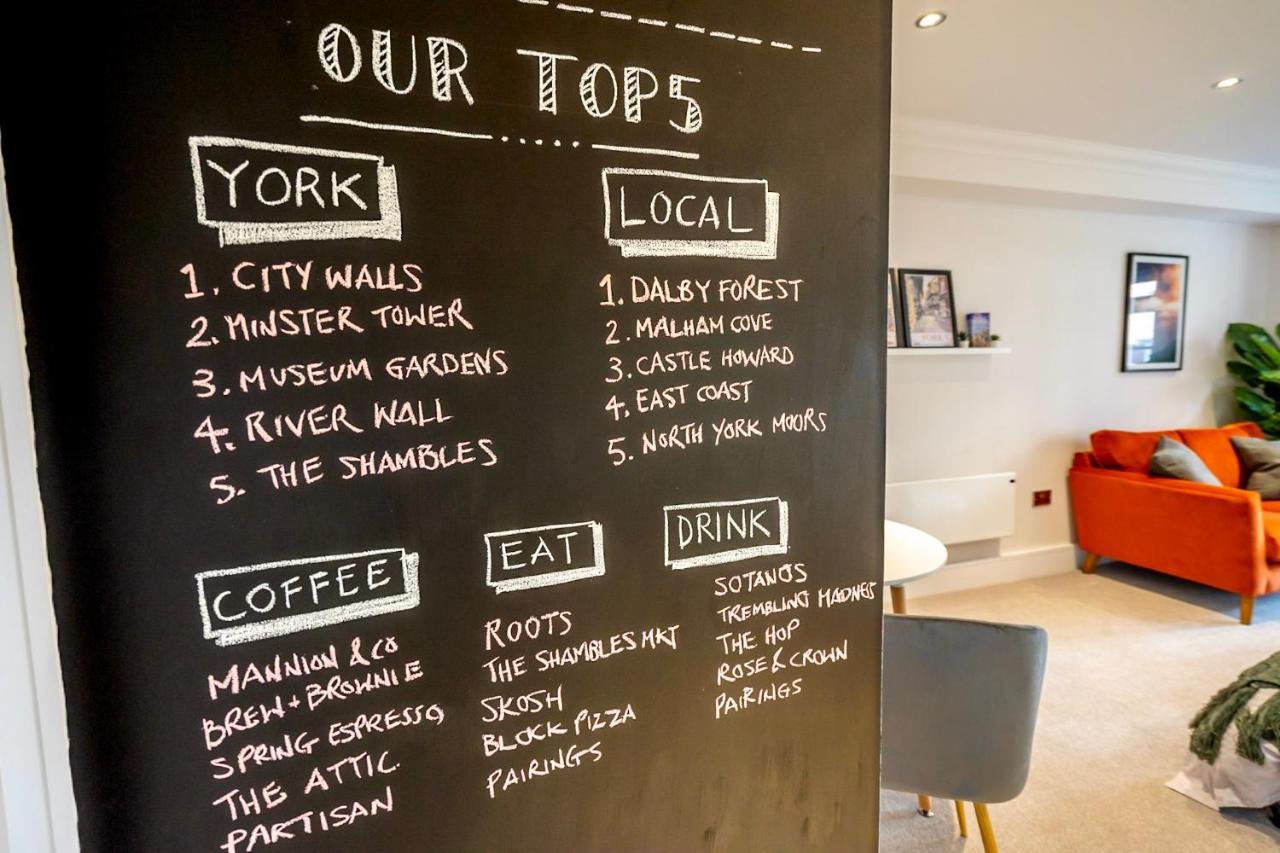 OUR TOP 5
YORK
1. CITY WALLS
2. MINSTER TOWER
3. MUSEUM GARDENS
4. RIVER WALL
5. THE SHAMBLES
LOCAL
1. DALBY FOREST
2. MALHAM COVE
3. CASTLE HOWARD
4. EAST COAST
5. NORTH YORK MOORS
COFFEE
MANNION & CO
BREW + BROWNIE
SPRING ESPRESSO
THE ATTIC.
PARTISAN
EAT
ROOTS
THE SHAMBLES MKT
SKOSH
BLOCK PIZZA
PAIRINGS
DRINK
SOTANOS
TREMBLING MADNESS
THE HOP
ROSE & CROWN
PAIRINGS
YORK